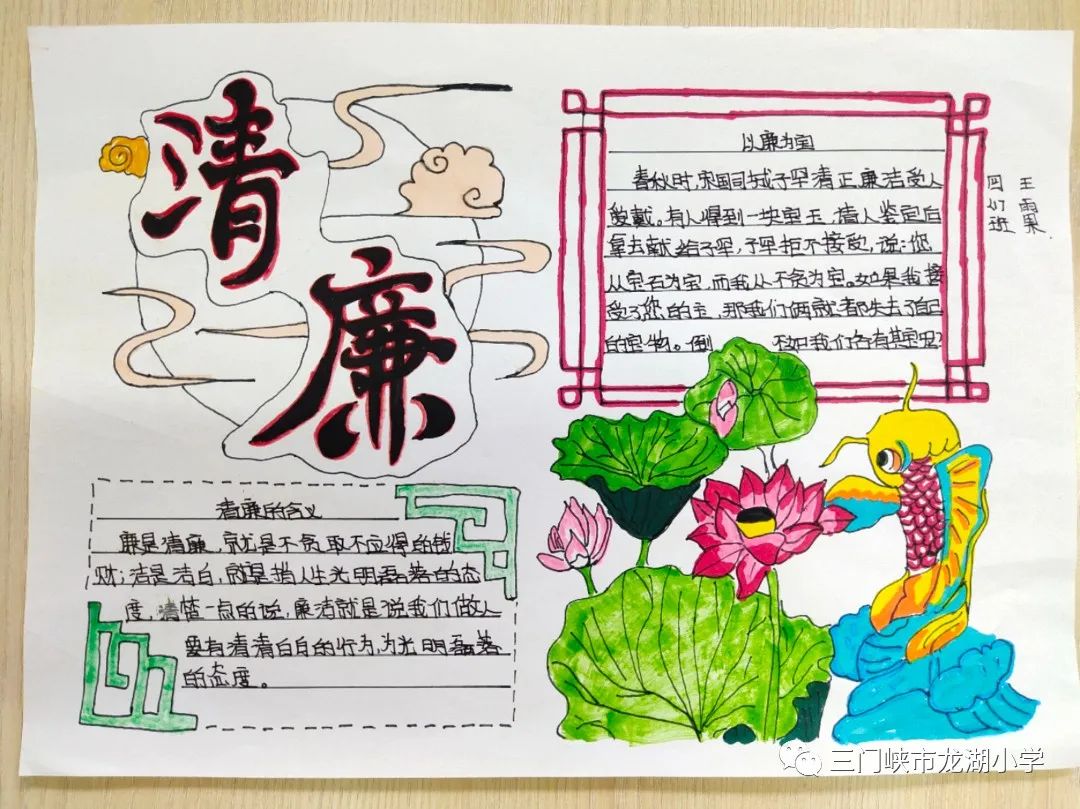 清
廉
以廉为宝
春秋时,宋国司城子罕清正廉洁受人
爱戴。有人得到一块宝玉,请人鉴定后
拿去献给子罕,子罕拒不接受,说:您
以宝石为宝,而我以不贪为宝。如果我接
受了您的玉,那我们俩就都失去了自己
的宝物。倒不如我们各有其宝呢?
王雨果
班
清廉的含义
廉是清廉,就是不贪取不应得的钱
财;洁是洁白,就是指人生光明磊落的态
度,清楚一点的说,廉洁就是说我们做人
要有清清白白的行为,为光明磊落
的态度。
三门峡市龙湖小学